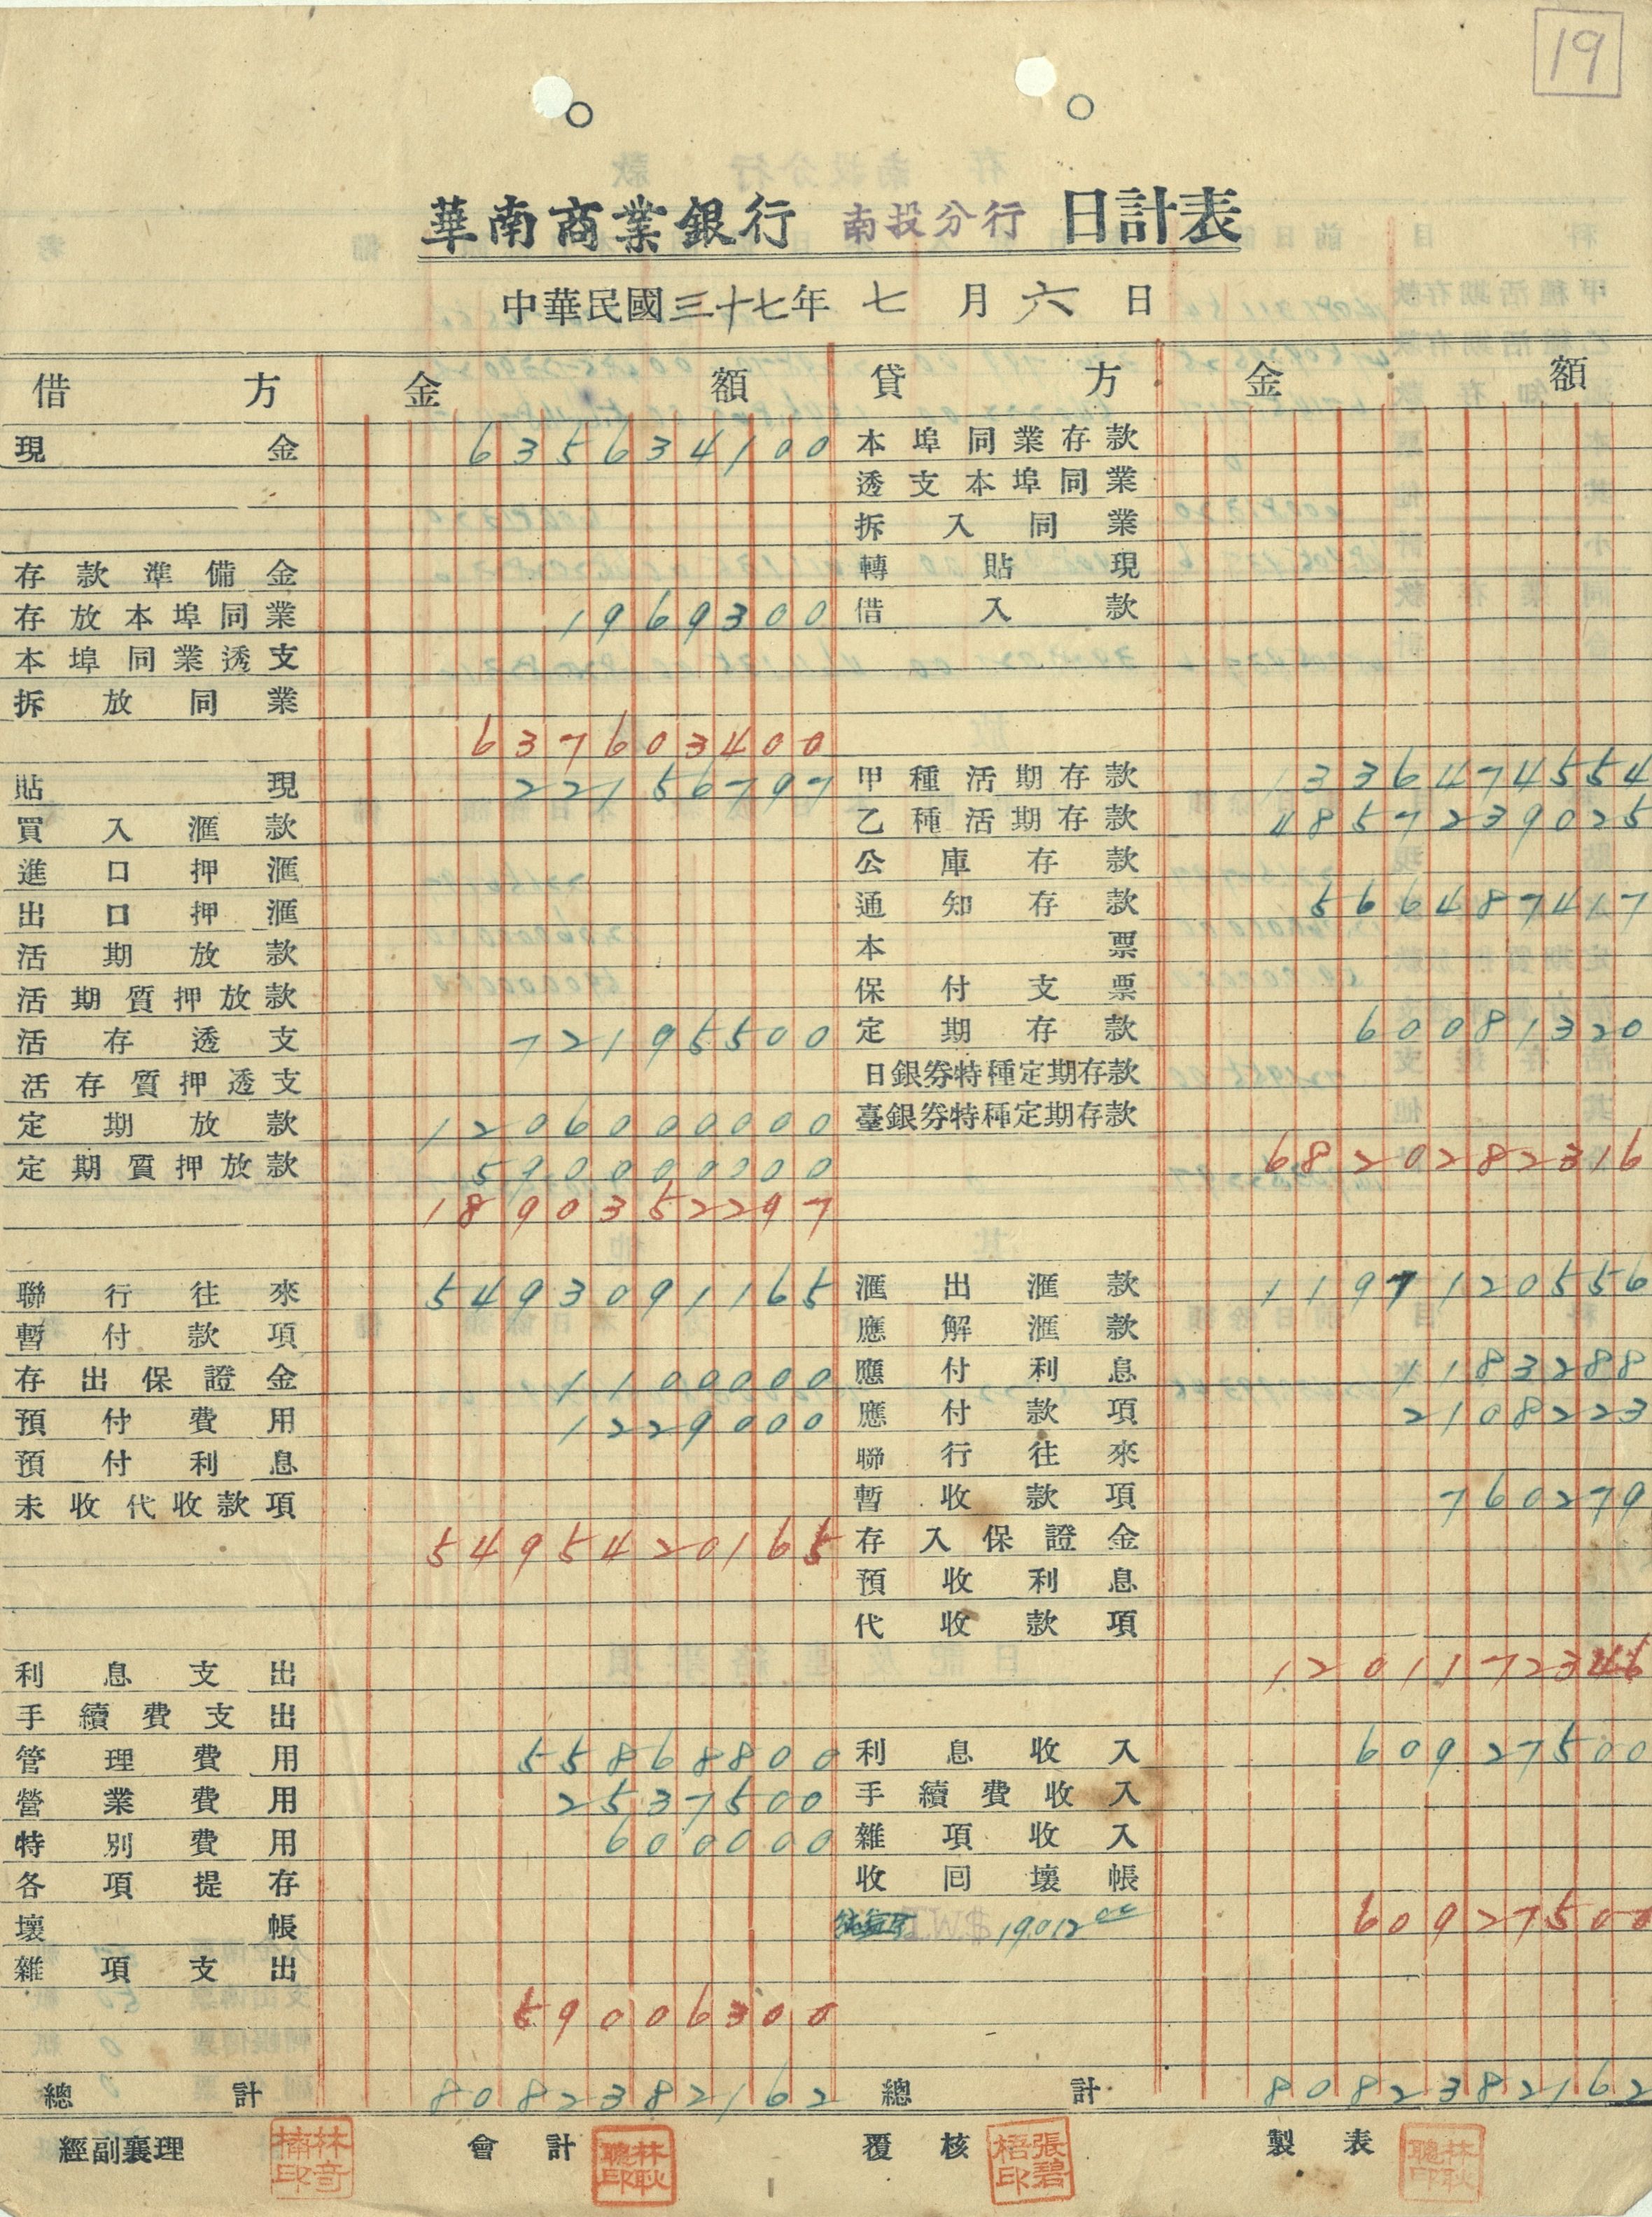 19
華南商業銀行 南投分行 日計表
中華民國三十七年 七 月 六 日
借方 金額 貸方 金額
現金 635634100 本埠同業存款
透支本埠同業
拆入同業
存款準備金 轉貼現
存放本埠同業 1969300 借入款
本埠同業透支
拆放同業
637603400
貼現 22156797 甲種活期存款 1336474554
買入滙款 乙種活期存款 4857239025
進口押滙 公庫存款
出口押滙 通知存款 566487417
活期放款 本票
活期質押放款 保付支票
活存透支 72195500 定期存款 60081320
活存質押透支 日銀券特種定期存款
定期放款 1206000000 臺銀券特種定期存款
定期質押放款 590000000 6820282316
1890352297
聯行往來 5493091165 滙出滙款 1197120556
暫付款項 應解滙款
存出保證金 1100000 應付利息 1183288
預付費用 1229000 應付款項 2108223
預付利息 聯行往來
未收代收款項 暫收款項 760279
5495420165 存入保證金
預收利息
代收款項
利息支出 1201172346
手續費支出
管理費用 55868800 利息收入 60927500
營業費用 2537500 手續費收入
特別費用 600000 雜項收入
各項提存 收回壞帳
壞帳 19,012 00 60927500
雜項支出
59006300
總計 8082382162 總計 8082382162
經副襄理 會計 林耿聰印 覆核 張碧梧印 製表 林耿聰印